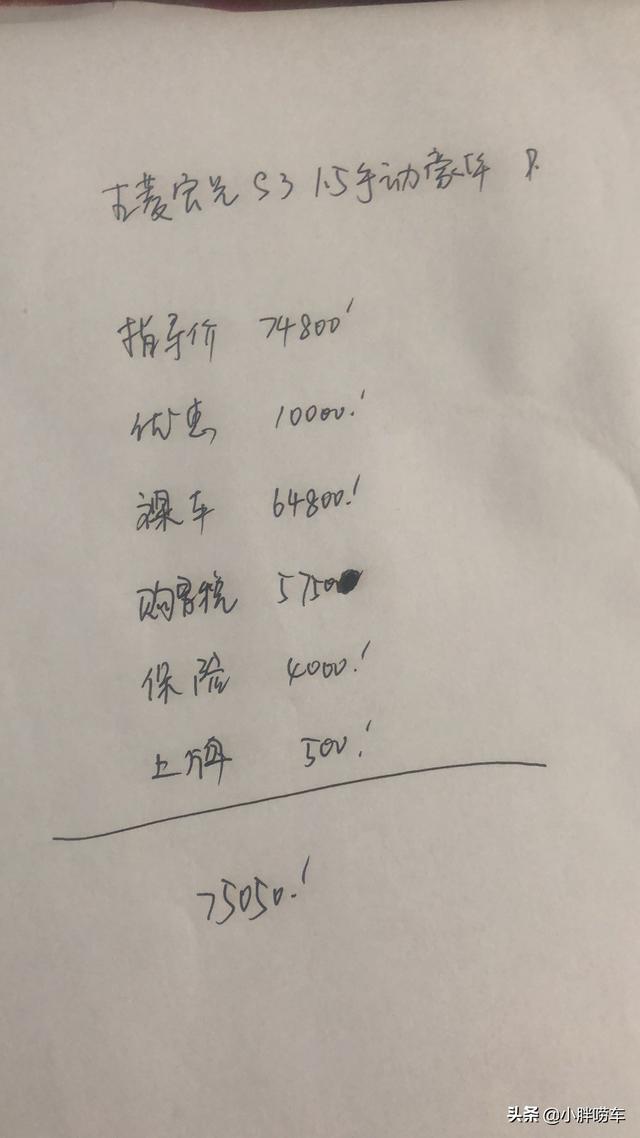 五菱宏光 S3 1.5手动豪华
指导价 74800!
优惠 10000.!
裸车 64800.!
购置税 5750
保险 4000.!
上牌 500.!
75050.!
头条 @小胖唠车